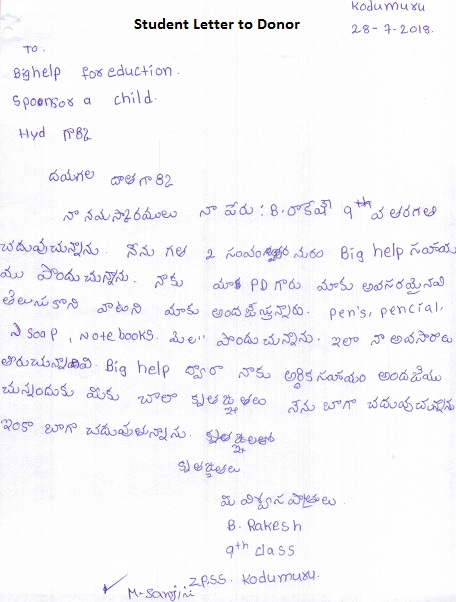 Kodumuru
Student Letter to Donor
28-7-2018.
To.
Bighelp for eduction.
Sponsor a child.
Hyd గారికి
దయగల దాత గారికి
నా నమస్కారములు నా పేరు : B. రాకేష్ 9th వ తరగతి
చదువుచున్నాను. నేను గత 2 సంవం నురం Big help సహాయ
ము పొందుచున్నాను. నాకు మాకు PD గారు మాకు అవసరమైనవి
తెలుసుకొని వాటిని మాకు అందజేస్తున్నారు. pen's, pencial,
soap, notebooks. మేలు పొందుచున్నాను. ఇలా నా అవసరాలు
తీరుచున్నావి. Big help ద్వారా నాకు ఆర్థిక సహాయం అందజేయు
చున్నందుకు మీకు చాలా కృతజ్ఞతలు నేను బాగా చదువుచున్నాను
ఇంకా బాగా చదువుతున్నాను. కృతజ్ఞలతో
కృతజ్ఞతలు
మీ విశ్వాసపాత్రులు.
B. Rakesh
9th class
Z.P.S.S. Kodumuru.